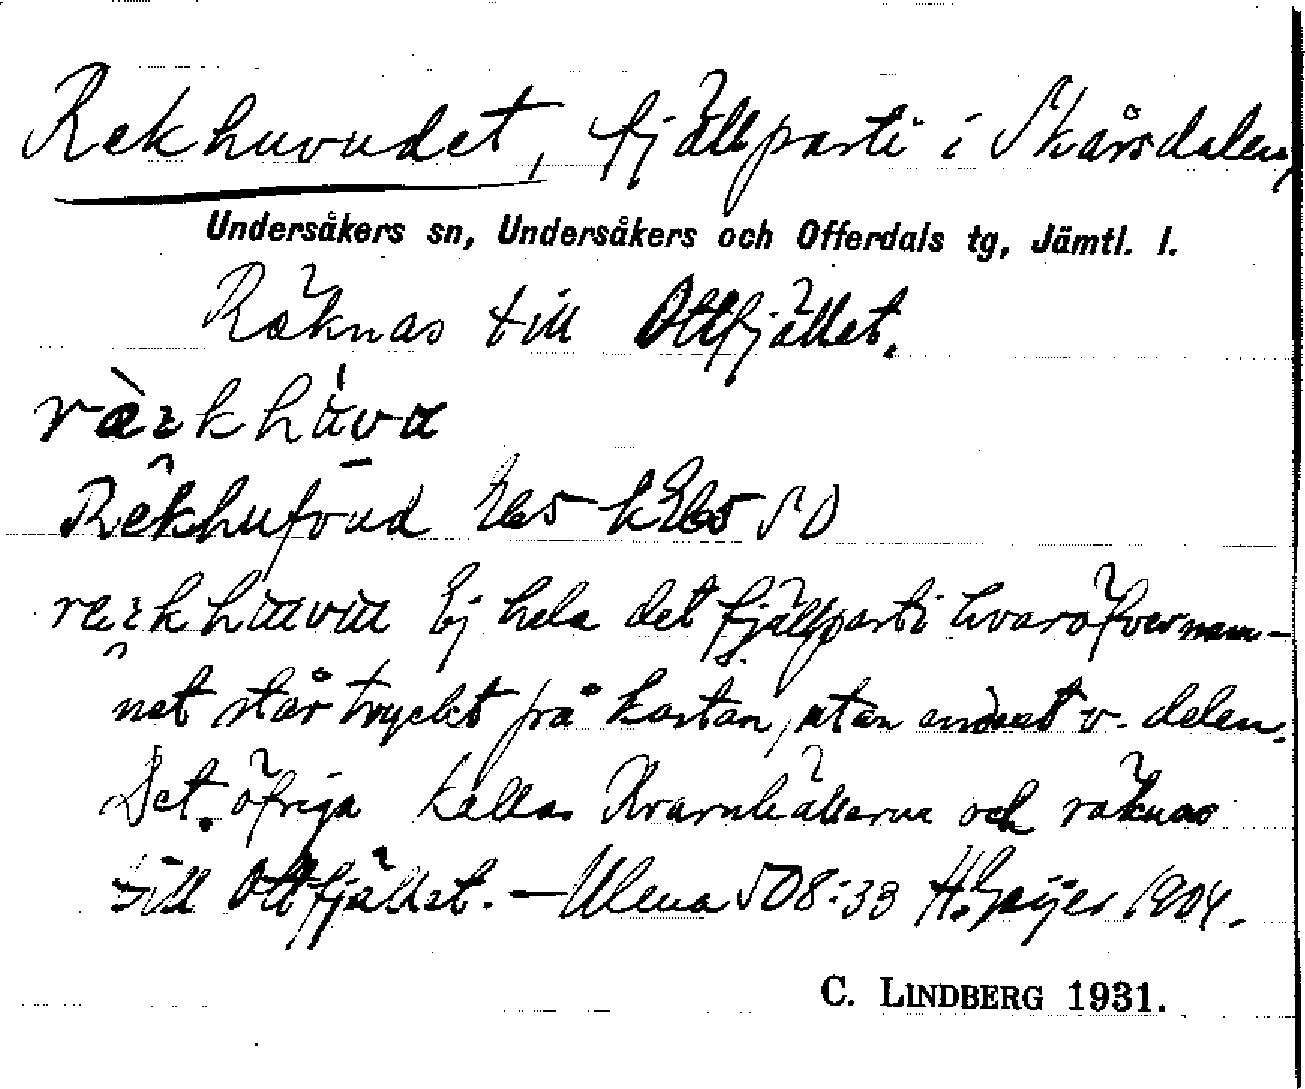 Rekhuvudet, fjällparti i Skårsdalen,
Undersåkers sn, Undersåkers och Offerdals tg, Jämtl. l.
Räknas till Ottfjället.
Rekhufvud
Ej hela det fjällparti hvaröfver nam-
net står tryckt på kartan, utan endast v. delen.
Det öfriga kallas och räknas
till Ottfjället. — Ulena 508:33 H. Geijer 1904.
C. LINDBERG 1931.